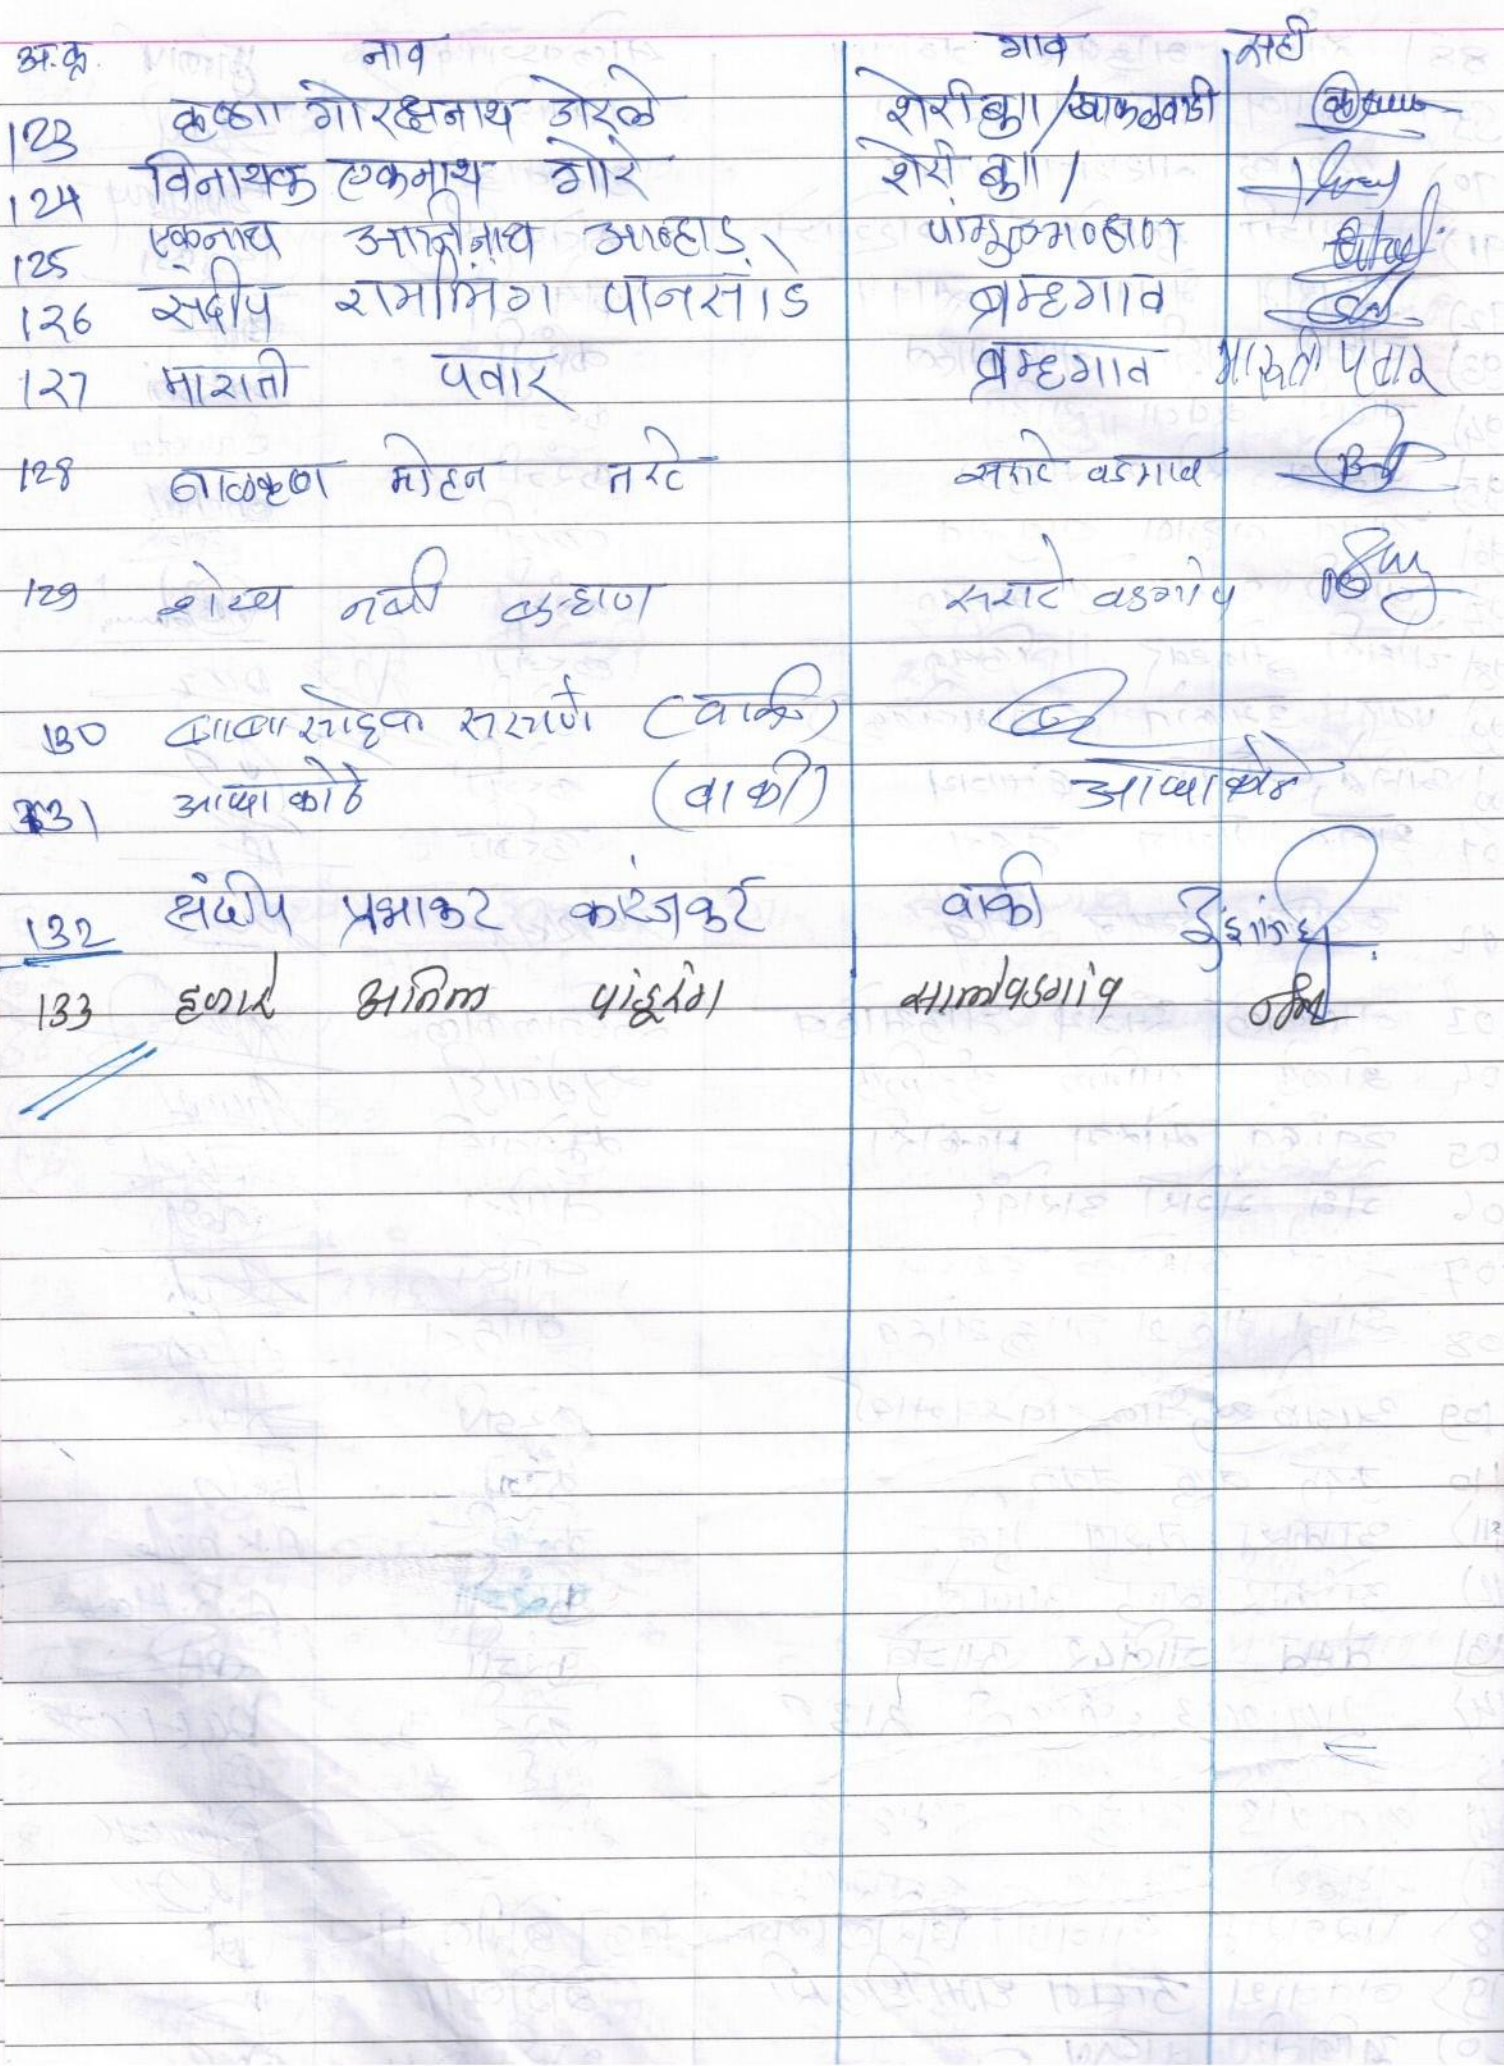 अ.क्र. नाव गाव सही
123 कृष्णा गोरक्षनाथ डोरले शेरी बु॥ /खाकळवाडी
124 विनायक एकनाथ गोरे शेरी बु॥ /
125 एकनाथ आदीनाथ आव्हाड
126 संदीप रामलिंग पानसांडे ब्रम्हगाव
127 मारुती पवार ब्रम्हगाव मारुती पवार
128 बाळकृष्ण मोहन तरटे सराटे वडगाव
129 शेख नबी कऱ्हाण सराटे वडगांव
130 बाबासाहेब (वाकी)
131 आप्पा कोठे (वाकी) आप्पा कोठे
132 संदीप प्रभाकर कारंजकर वाकी
133 हजारे अनिल पांडूरंग सालेवडगांव